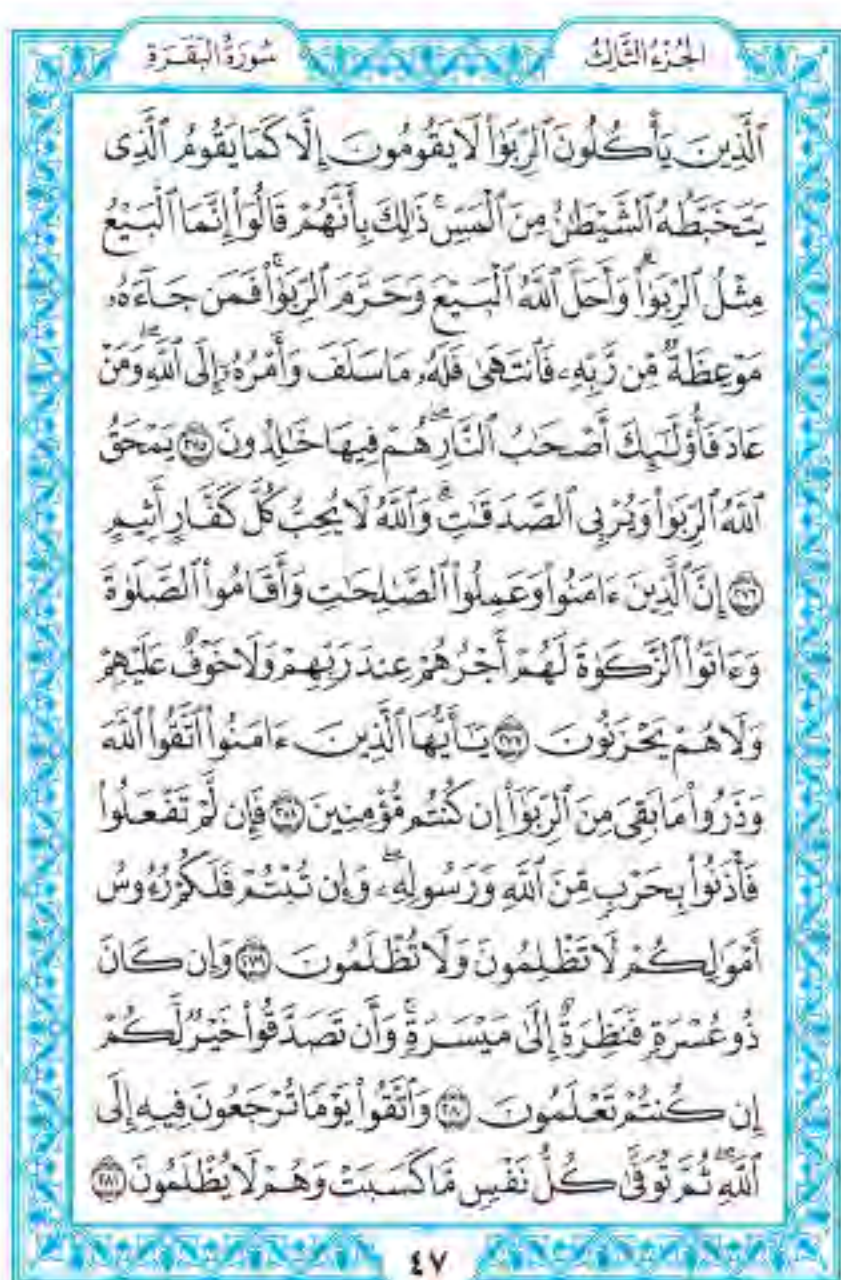 الجُزْءُ الثَّالِثُ
سُورَةُ الْبَقَرَةِ
ٱلَّذِينَ يَأۡكُلُونَ ٱلرِّبَوٰاْ لَا يَقُومُونَ إِلَّا كَمَا يَقُومُ ٱلَّذِى
يَتَخَبَّطُهُ ٱلشَّيۡطَٰنُ مِنَ ٱلۡمَسِّۚ ذَٰلِكَ بِأَنَّهُمۡ قَالُوٓاْ إِنَّمَا ٱلۡبَيۡعُ
مِثۡلُ ٱلرِّبَوٰاْۗ وَأَحَلَّ ٱللَّهُ ٱلۡبَيۡعَ وَحَرَّمَ ٱلرِّبَوٰاْۚ فَمَن جَآءَهُۥ
مَوۡعِظَةٞ مِّن رَّبِّهِۦ فَٱنتَهَىٰ فَلَهُۥ مَا سَلَفَ وَأَمۡرُهُۥٓ إِلَى ٱللَّهِۖ وَمَنۡ
عَادَ فَأُوْلَٰٓئِكَ أَصۡحَٰبُ ٱلنَّارِۖ هُمۡ فِيهَا خَٰلِدُونَ ٢٧٥ يَمۡحَقُ
ٱللَّهُ ٱلرِّبَوٰاْ وَيُرۡبِى ٱلصَّدَقَٰتِۗ وَٱللَّهُ لَا يُحِبُّ كُلَّ كَفَّارٍ أَثِيمٍ
٢٧٦ إِنَّ ٱلَّذِينَ ءَامَنُواْ وَعَمِلُواْ ٱلصَّٰلِحَٰتِ وَأَقَامُواْ ٱلصَّلَوٰةَ
وَءَاتَوُاْ ٱلزَّكَوٰةَ لَهُمۡ أَجۡرُهُمۡ عِندَ رَبِّهِمۡ وَلَا خَوۡفٌ عَلَيۡهِمۡ
وَلَا هُمۡ يَحۡزَنُونَ ٢٧٧ يَٰٓأَيُّهَا ٱلَّذِينَ ءَامَنُواْ ٱتَّقُواْ ٱللَّهَ
وَذَرُواْ مَا بَقِىَ مِنَ ٱلرِّبَوٰٓاْ إِن كُنتُم مُّؤۡمِنِينَ ٢٧٨ فَإِن لَّمۡ تَفۡعَلُواْ
فَأۡذَنُواْ بِحَرۡبٖ مِّنَ ٱللَّهِ وَرَسُولِهِۦۖ وَإِن تُبۡتُمۡ فَلَكُمۡ رُءُوسُ
أَمۡوَٰلِكُمۡ لَا تَظۡلِمُونَ وَلَا تُظۡلَمُونَ ٢٧٩ وَإِن كَانَ
ذُو عُسۡرَةٖ فَنَظِرَةٌ إِلَىٰ مَيۡسَرَةٖۚ وَأَن تَصَدَّقُواْ خَيۡرٞ لَّكُمۡ
إِن كُنتُمۡ تَعۡلَمُونَ ٢٨٠ وَٱتَّقُواْ يَوۡمٗا تُرۡجَعُونَ فِيهِ إِلَى
ٱللَّهِۖ ثُمَّ تُوَفَّىٰ كُلُّ نَفۡسٖ مَّا كَسَبَتۡ وَهُمۡ لَا يُظۡلَمُونَ ٢٨١
٤٧